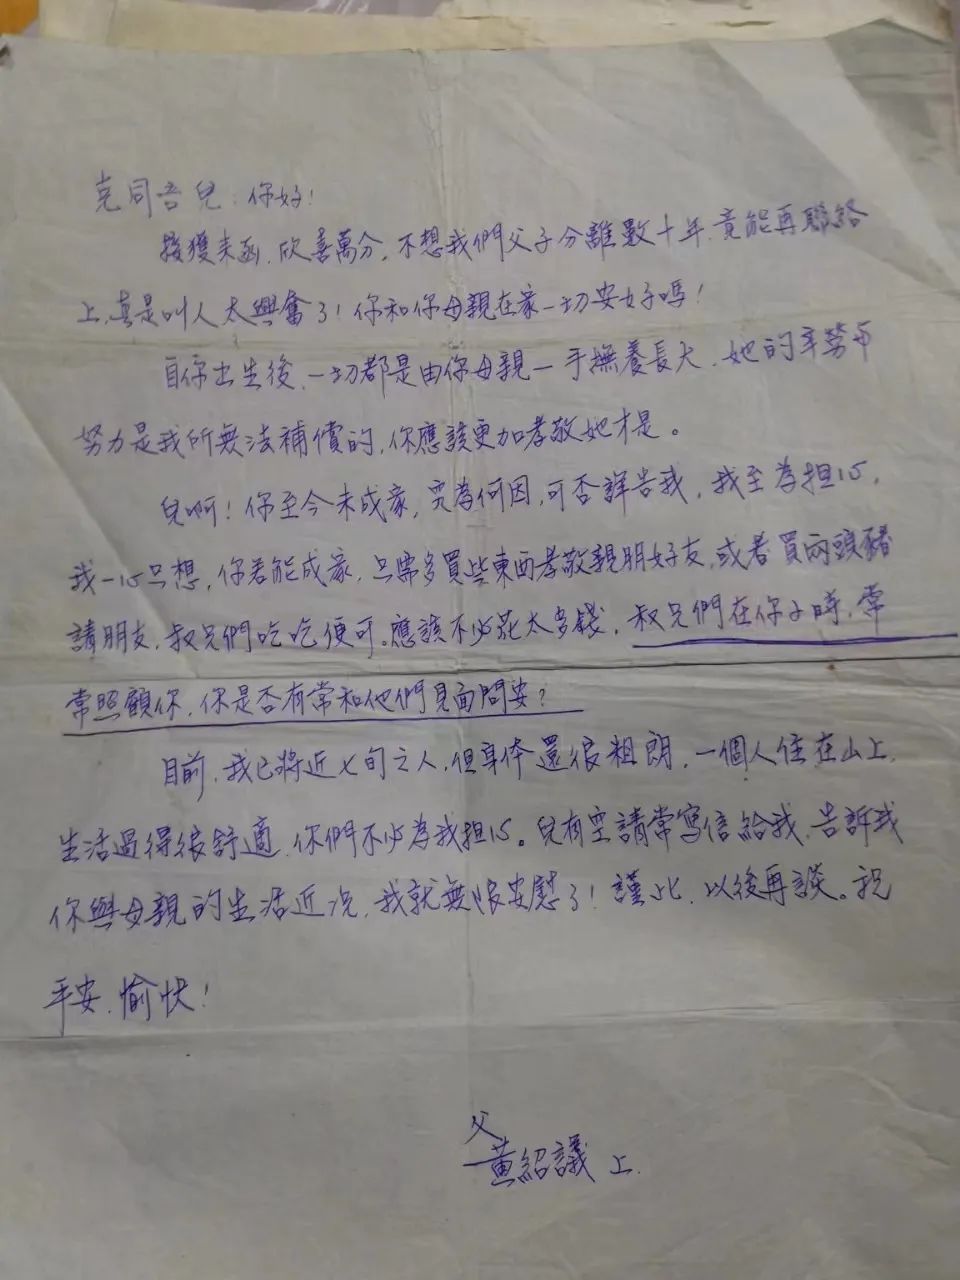 克同吾兒：你好！
接獲來函，欣喜萬分，不想我們父子分離數十年，竟能再聯絡
上，真是叫人太興奮了！你和你母親在家一切安好嗎！
自你出生後，一切都是由你母親一手撫養長大，她的辛勞
努力是我所無法補償的，你應該更加孝敬她才是。
兒啊！你至今未成家，究為何因，可否詳告我，我至為担心，
我一心只想，你若能成家，只需多買些東西孝敬親朋好友，或者買兩頭豬
請朋友，叔兄們吃吃便可。應該不必花太多錢，叔兄們在你小時，常
常照顧你，你是否有常和他們見面問安？
目前，我已將近七旬之人，但身体還很粗朗，一個人住在山上，
生活過得很舒適，你們不必為我担心。兒有空請常寫信給我，告訴我
你與母親的生活近況，我就無限安慰了！謹此，以後再談。祝
平安，愉快！
父
黃紹議 上.